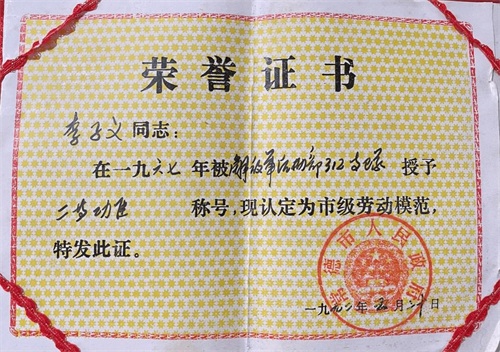 荣誉证书
李子文同志:
在一九六七年被解放军活动部312支队授予
二等功臣 称号,现认定为市级劳动模范,
特发此证。
常德市人民政府
一九九二年五月二十日